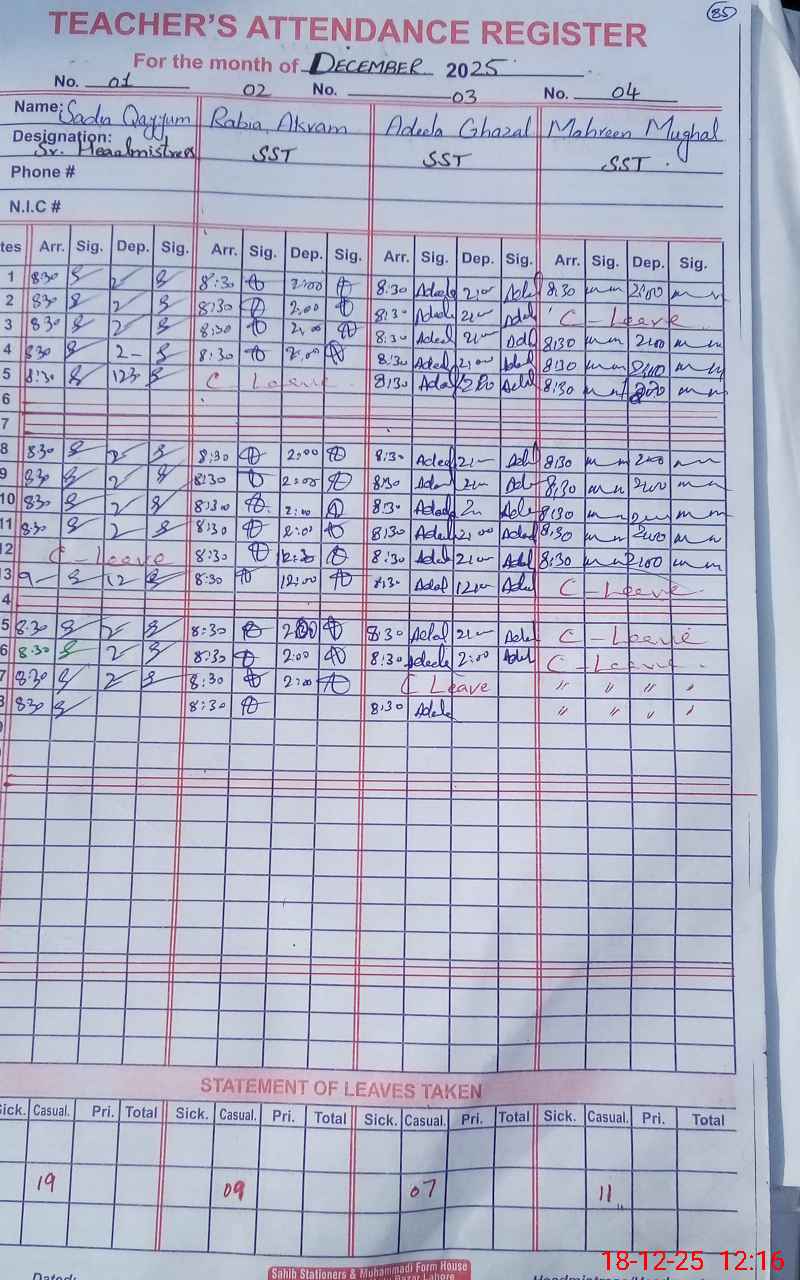 85
TEACHER'S ATTENDANCE REGISTER
For the month of DECEMBER 2025
No. 01 02 No. 03 No. 04
Name: Sadia Qayyum Rabia Akram Adeela Ghazal Mahreen Mughal
Designation: Sr. Headmistress SST SST SST
Phone #
N.I.C #
tes Arr. Sig. Dep. Sig. Arr. Sig. Dep. Sig. Arr. Sig. Dep. Sig. Arr. Sig. Dep. Sig.
1 830 2 8:30 2:00 8:30 Adeela 2:00 Adel 8:30 2:00
2 830 2 8:30 2:00 8:30 Adeela 2:00 Adel C-Leave
3 830 2 8:30 2:00 8:30 Adeel 2:00 Adel 8:30 2:00
4 830 2- 8:30 2:00 8:30 Adeel 2:00 Adel 8:30 2:00
5 8:30 C Leave 8:30 Adel Adel 8:30
6
7
8 830 2 8:30 2:00 8:30 Adeel 2:00 Adel 8:30 2:00
9 830 2 8:30 2:00 8:30 Adeel 2:00 Adel 8:30 2:00
10 830 2 8:30 2:00 8:30 Adeela 2 Adel 8:30 2:00
11 8:30 2 8:30 2:00 8:30 Adeel 2:00 Adel 8:30 2:00
2 C-Leave 8:30 12:30 8:30 Adel 2:00 Adel 8:30 2:00
3 9- 12 8:30 12:00 8:30 Adel 12:00 Adel C-Leave
4
5 8:30 2 8:30 2:00 8:30 Adel 2:00 Adel C-Leave
6 8:30 2 8:30 2:00 8:30 Adeela 2:00 Adel C-Leave
7 8:30 2 8:30 2:00 C Leave " " " "
8 830 8:30 8:30 Adeela " " " "
STATEMENT OF LEAVES TAKEN
Sick. Casual. Pri. Total Sick. Casual. Pri. Total Sick. Casual. Pri. Total Sick. Casual. Pri. Total
19 09 07 11
Dated:
Sahib Stationers & Muhammadi Form House
Bazar Lahore
18-12-25 12:16